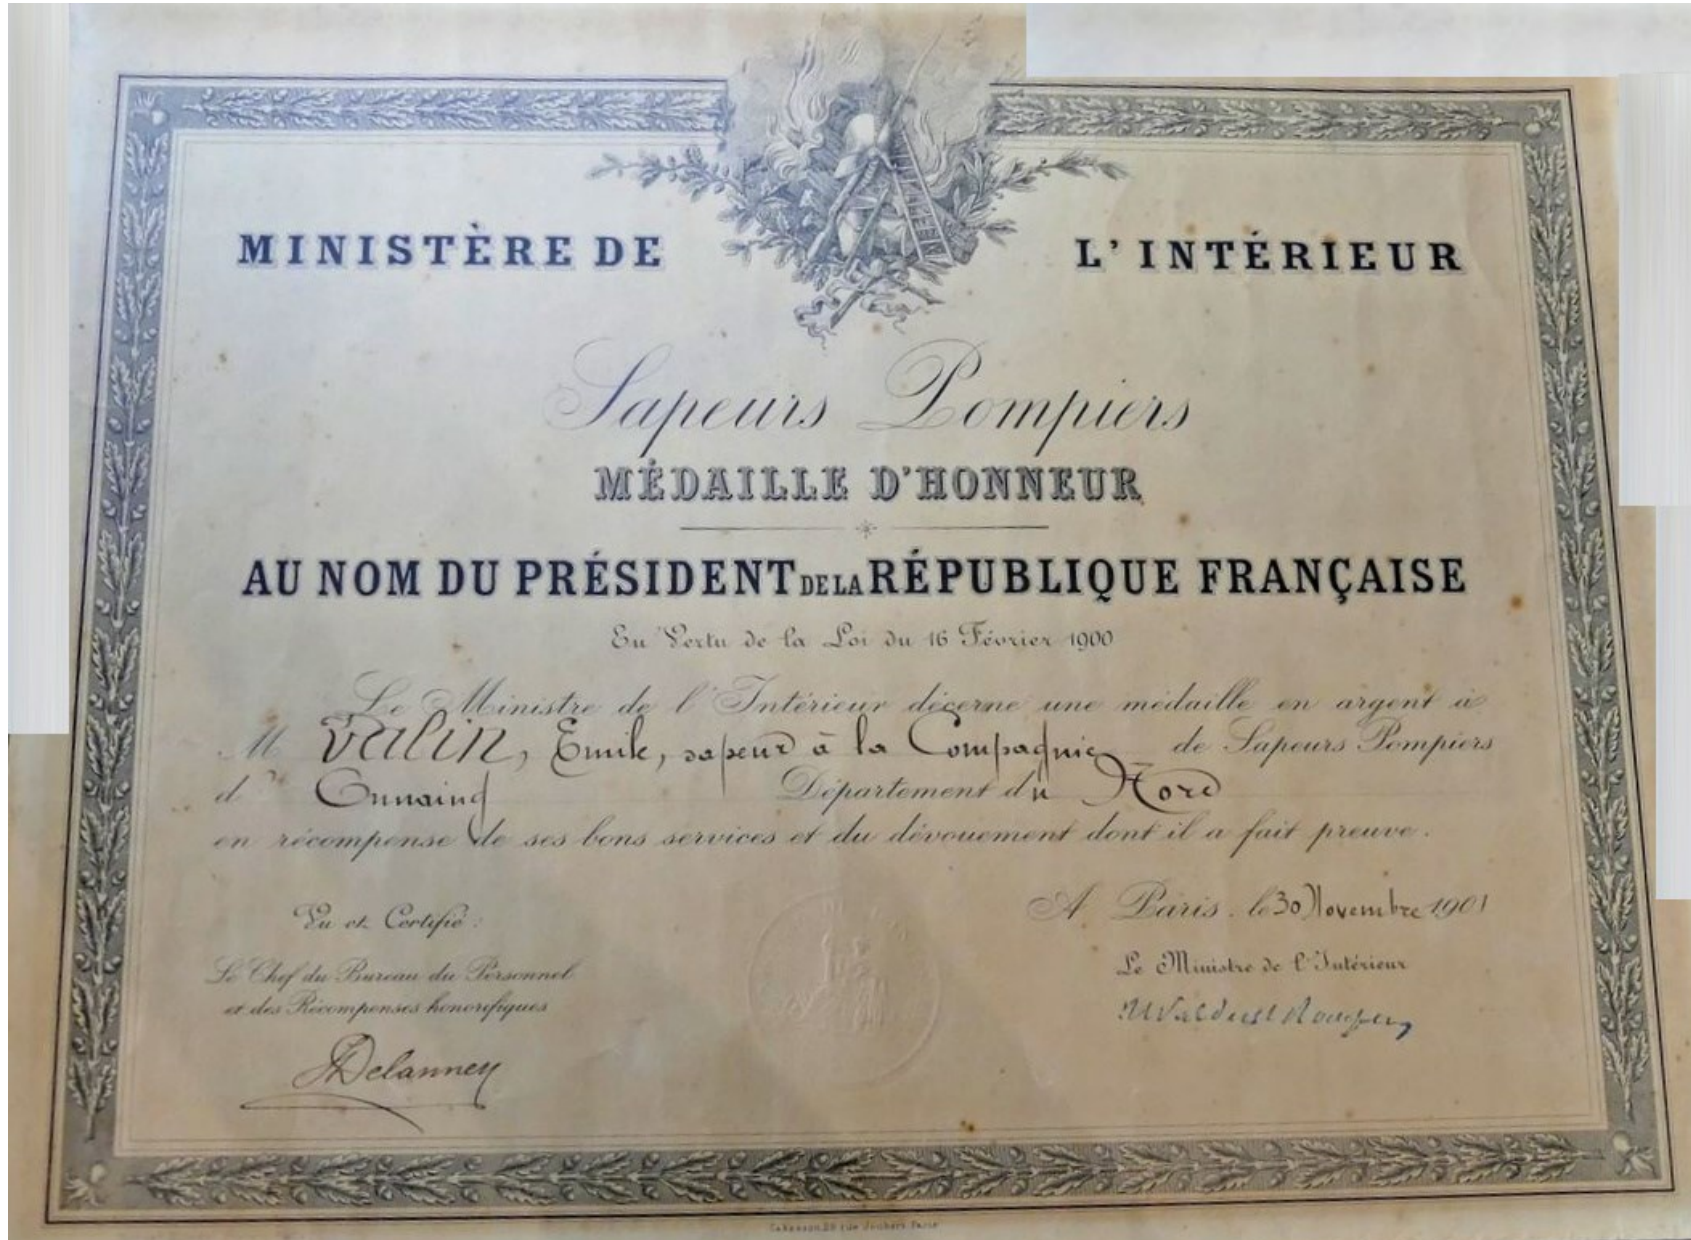 MINISTÈRE DE L'INTÉRIEUR
Sapeurs Pompiers
MÉDAILLE D'HONNEUR
AU NOM DU PRÉSIDENT DE LA RÉPUBLIQUE FRANÇAISE
En Vertu de la Loi du 16 Février 1900
Le Ministre de l'Intérieur décerne une médaille en argent à
M Valin, Emile, sapeur à la Compagnie de Sapeurs Pompiers
d' Onnaing Département du Nord
en récompense de ses bons services et du dévouement dont il a fait preuve.
A Paris, le 30 Novembre 1901
Vu et Certifié :
Le Ministre de l'Intérieur
Le Chef du Bureau du Personnel
et des Récompenses honorifiques
Waldeck Rousseau
Delanney
rue Joubert Paris